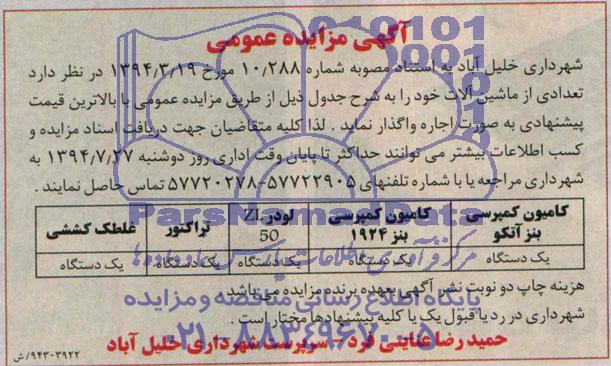 آگهی مزایده عمومی
شهرداری خلیل آباد به استناد مصوبه شماره ۱۰٫۲۸۸ مورخ ۱۳۹۴٫۳٫۱۹ در نظر دارد
تعدادی از ماشین آلات خود را به شرح جدول ذیل از طریق مزایده عمومی با بالاترین قیمت
پیشنهادی به صورت اجاره واگذار نماید . لذا کلیه متقاضیان جهت دریافت اسناد مزایده و
کسب اطلاعات بیشتر می توانند حداکثر تا پایان وقت اداری روز دوشنبه ۱۳۹۴٫۷٫۲۷ به
شهرداری مراجعه یا با شماره تلفنهای ۵۷۷۲۲۹۰۵-۵۷۷۲۰۲۷۸ تماس حاصل نمایند .
کامیون کمپرسی بنز آتکو کامیون کمپرسی بنز ۱۹۲۴ لودر ZL 50 تراکتور غلطک کششی
یک دستگاه یک دستگاه یک دستگاه یک دستگاه یک دستگاه
هزینه چاپ دو نوبت نشر آگهی بعهده برنده مزایده می باشد
شهرداری در رد یا قبول یک یا کلیه پیشنهادها مختار است .
حمید رضا عنایتی فرد - سرپرست شهرداری خلیل آباد
۹۴۳۰۳۹۲۲/ش
ParsNamadData
پایگاه اطلاع رسانی مناقصه و مزایده
۰۲۱-۸۸۳۴۹۶۷۰-۵